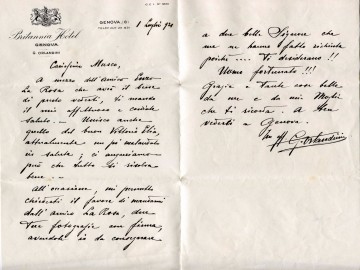 Britannia Hotel
GENOVA
GENOVA, (6)
1 Luglio 924
Carissimo Musco,
A mezzo dell'amico Enzo
La Rosa che avrà il bene
di poterti vederti, ti mando
il mio affettuoso e cordiale
saluto. - Unisco anche
quello del buon Vittorio Elia,
attualmente un po' malandato
in salute; ci auguriamo
però che tutto si risolva
bene. -
All'occasione, mi permetto
chiederti il favore di mandarmi
dall'amico La Rosa, due
Tue fotografie con firma,
avendole io da consegnare
a due belle Signore che
me ne hanno fatto richiesta
poichè .... Ti desiderano!!
Uomo fortunato!!!
Grazie e tante cose belle
da me e da mia Moglie
che ti ricorda. A ben
vederti a Genova.